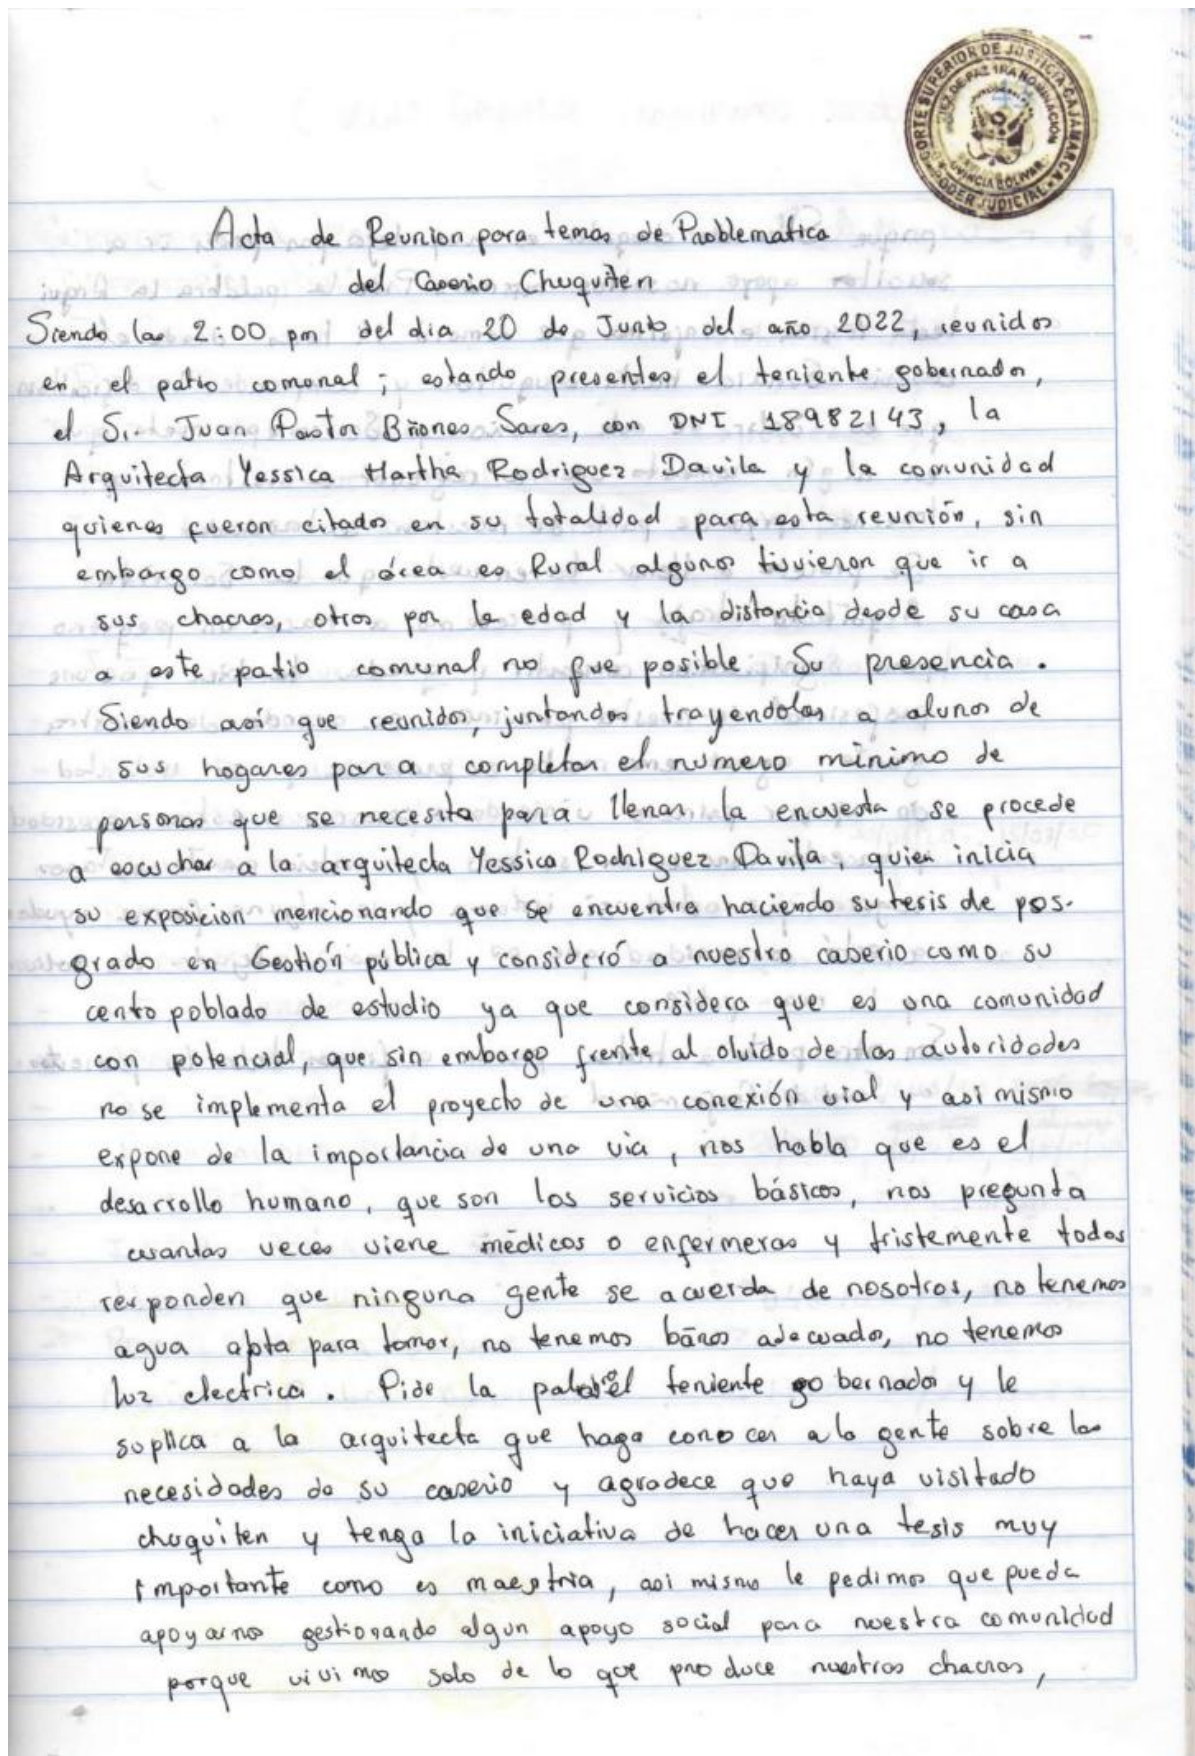 CORTE SUPERIOR DE JUSTICIA CAJAMARCA
JUEZ DE PAZ 1RA NOMINACIÓN
PROVINCIA BOLIVAR
PODER JUDICIAL
Acta de Reunion para temas de Problematica
del Caserio Chuquiten
Siendo las 2:00 pm del dia 20 de Junio del año 2022, reunidos
en el patio comonal; estando presentes el teniente gobernador,
el Sr. Juan Pastor Briones Sares, con DNI 18982143, la
Arquitecta Yessica Martha Rodriguez Davila y la comunidad
quienes fueron citados en su totalidad para esta reunión, sin
embargo como el área es Rural algunos tuvieron que ir a
sus chacras, otros por la edad y la distancia desde su casa
a este patio comunal no fue posible su presencia.
Siendo así que reunidos, juntandos trayendolas a alunos de
sus hogares para completar el numero minimo de
personas que se necesita para llenar la encuesta se procede
a escuchar a la arquitecta Yessica Rodriguez Davila, quien inicia
su exposicion mencionando que se encuentra haciendo su tesis de pos-
grado en Gestión pública y consideró a nuestro caserio como su
cento poblado de estudio ya que considera que es una comunidad
con potencial, que sin embargo frente al olvido de las autoridades
no se implementa el proyecto de una conexión vial y asi mismo
expone de la importancia de una via, nos habla que es el
desarrollo humano, que son los servicios básicos, nos pregunta
cuantas veces viene médicos o enfermeras y tristemente todos
responden que ninguna gente se acuerda de nosotros, no tenemos
agua apta para tomar, no tenemos baños adecuados, no tenemos
luz electrica. Pide la palabra el teniente gobernador y le
suplica a la arquitecta que haga conocer a la gente sobre las
necesidades de su caserio y agradece que haya visitado
chuquiten y tenga la iniciativa de hacer una tesis muy
importante como es maestria, asi mismo le pedimos que pueda
apoyarnos gestionando algun apoyo social para nuestra comunidad
porque vivimos solo de lo que produce nuestras chacras,